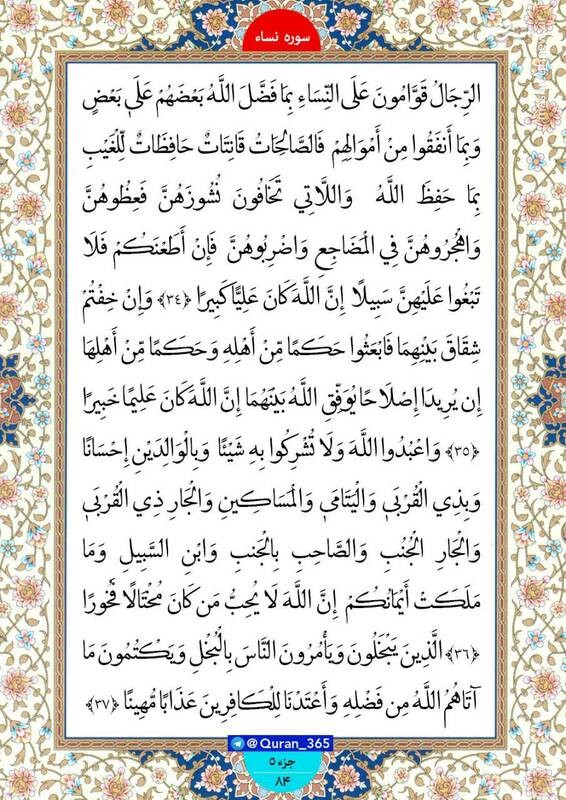 سوره نساء
الرِّجَالُ قَوَّامُونَ عَلَى النِّسَاءِ بِمَا فَضَّلَ اللَّهُ بَعْضَهُمْ عَلَى بَعْضٍ
وَبِمَا أَنفَقُوا مِنْ أَمْوَالِهِمْ فَالصَّالِحَاتُ قَانِتَاتٌ حَافِظَاتٌ لِّلْغَيْبِ
بِمَا حَفِظَ اللَّهُ وَاللَّاتِي تَخَافُونَ نُشُوزَهُنَّ فَعِظُوهُنَّ
وَاهْجُرُوهُنَّ فِي الْمَضَاجِعِ وَاضْرِبُوهُنَّ فَإِنْ أَطَعْنَكُمْ فَلَا
تَبْغُوا عَلَيْهِنَّ سَبِيلًا إِنَّ اللَّهَ كَانَ عَلِيًّا كَبِيرًا ﴿٣٤﴾ وَإِنْ خِفْتُمْ
شِقَاقَ بَيْنِهِمَا فَابْعَثُوا حَكَمًا مِّنْ أَهْلِهِ وَحَكَمًا مِّنْ أَهْلِهَا
إِن يُرِيدَا إِصْلَاحًا يُوَفِّقِ اللَّهُ بَيْنَهُمَا إِنَّ اللَّهَ كَانَ عَلِيمًا خَبِيرًا
﴿٣٥﴾ وَاعْبُدُوا اللَّهَ وَلَا تُشْرِكُوا بِهِ شَيْئًا وَبِالْوَالِدَيْنِ إِحْسَانًا
وَبِذِي الْقُرْبَى وَالْيَتَامَى وَالْمَسَاكِينِ وَالْجَارِ ذِي الْقُرْبَى
وَالْجَارِ الْجُنُبِ وَالصَّاحِبِ بِالْجَنبِ وَابْنِ السَّبِيلِ وَمَا
مَلَكَتْ أَيْمَانُكُمْ إِنَّ اللَّهَ لَا يُحِبُّ مَن كَانَ مُخْتَالًا فَخُورًا
﴿٣٦﴾ الَّذِينَ يَبْخَلُونَ وَيَأْمُرُونَ النَّاسَ بِالْبُخْلِ وَيَكْتُمُونَ مَا
آتَاهُمُ اللَّهُ مِن فَضْلِهِ وَأَعْتَدْنَا لِلْكَافِرِينَ عَذَابًا مُّهِينًا ﴿٣٧﴾
@Quran_365
جزء ۵
۸۴